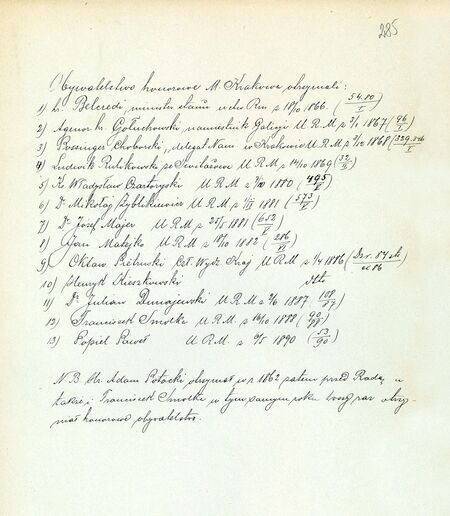 285
Obywatelstwo honorowe M. Krakowa otrzymali:
1) hr. Belcredi minister stanu uchw. Rm. z 18/10 1866. (54.80/I)
2) Agenor hr. Gołuchowski namiestnik Galicyi U R M z 3/1 1867 (96/I)
3) Possinger Choborski, delegat Nam. w Krakowie U R M z 3/12 1868
4) Ludwik U R M z 14/10 1869 (32/)
5) Ks Władysław Czartoryski U R M z 1880 (495/)
6) Dr Mikołaj Zyblikiewicz U R M z 1881 (573/)
7) Dr Józef Majer U R M z 25/5 1881 (652/)
8) Jan Matejko U R M z /10 1882 (286/)
9) Oktaw Pietruski Czł. Wydz. Kraj U R M z 1/4 1886
10) Henryk Kieszkowski dtto
11) Dr. Julian Dunajewski U R M z 2/6 1887 (108/87)
12) Franciszek Smolka U R M. z 16/10 1888 (90/88)
13) Popiel Paweł U R M z 1890 (53/90)
N B. Hr. Adam Potocki otrzymał w r 1862 zatem przed Radą, a
także i Franciszek Smolka w tym samym roku raz otrzy-
mał honorowe obywatelstwo.